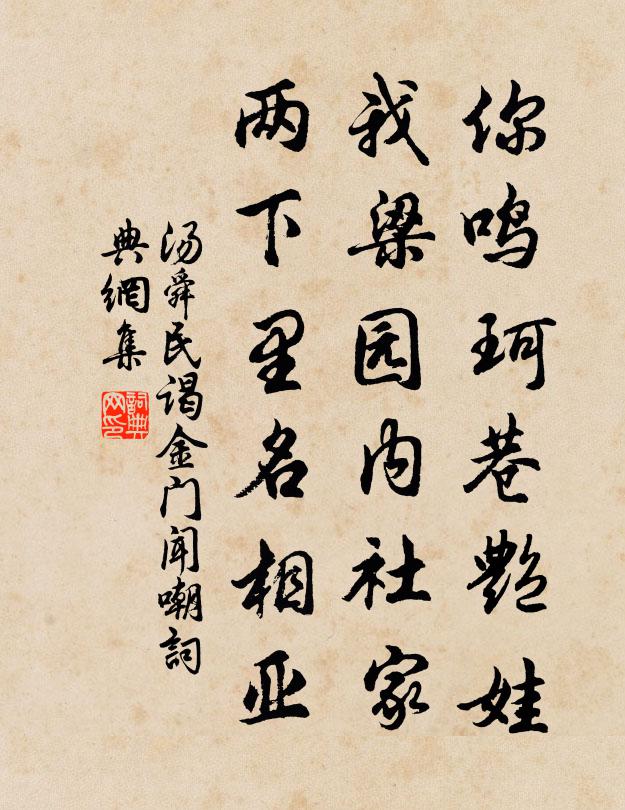 你鸣珂巷艷娃
我梁园内社家
两下里名相亚
汤舜民谒金门闻嘲詞
典網集
詞典网印